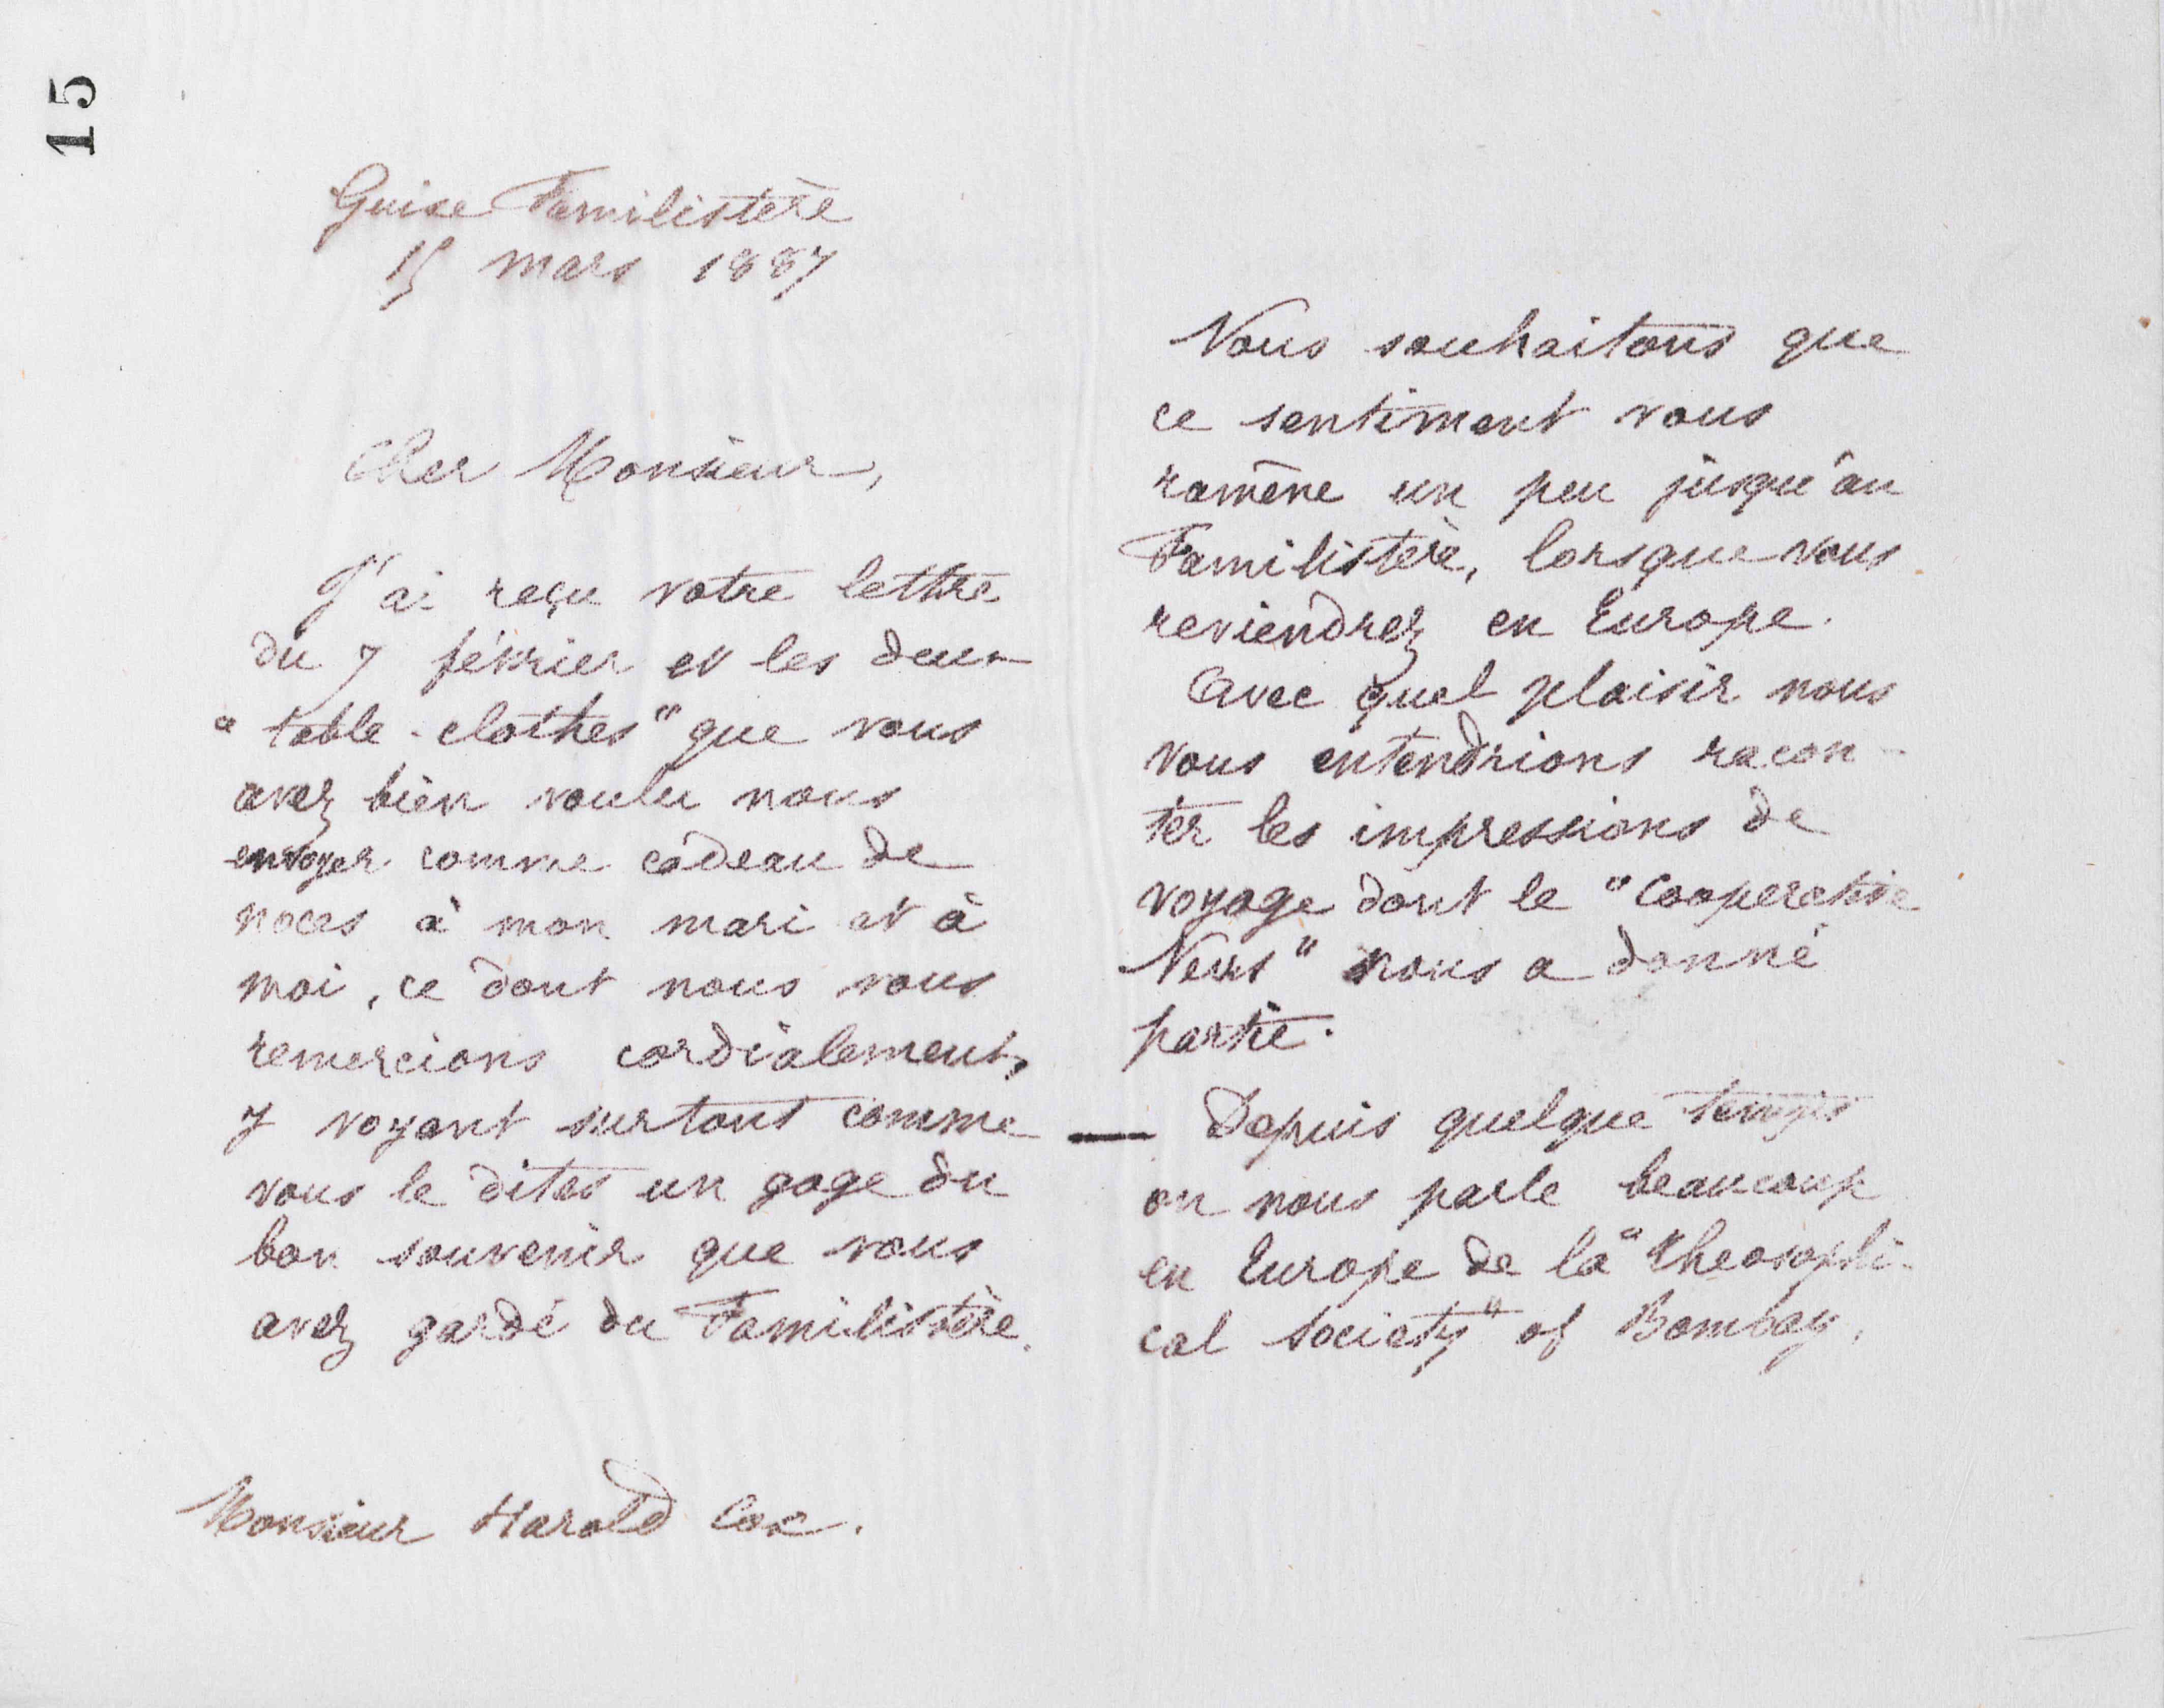 15
Guise Familistère
15 mars 1887
Cher Monsieur,
J'ai reçu votre lettre
du 7 février et les deux
"table-clothes" que vous
avez bien voulu nous
envoyer comme cadeau de
noces à mon mari et à
moi, ce dont nous vous
remercions cordialement,
y voyant surtout comme
vous le dites un gage du
bon souvenir que vous
avez gardé du Familistère.
Monsieur Harold Cox.
Nous souhaitons que
ce sentiment vous
ramène un peu jusqu'au
Familistère, lorsque vous
reviendrez en Europe.
Avec quel plaisir nous
vous entendrions racon-
ter les impressions de
voyage dont le "Cooperative
News" nous a donné
partie.
— Depuis quelque temps
on nous parle beaucoup
en Europe de la "Theosophi-
cal Society" of Bombay,